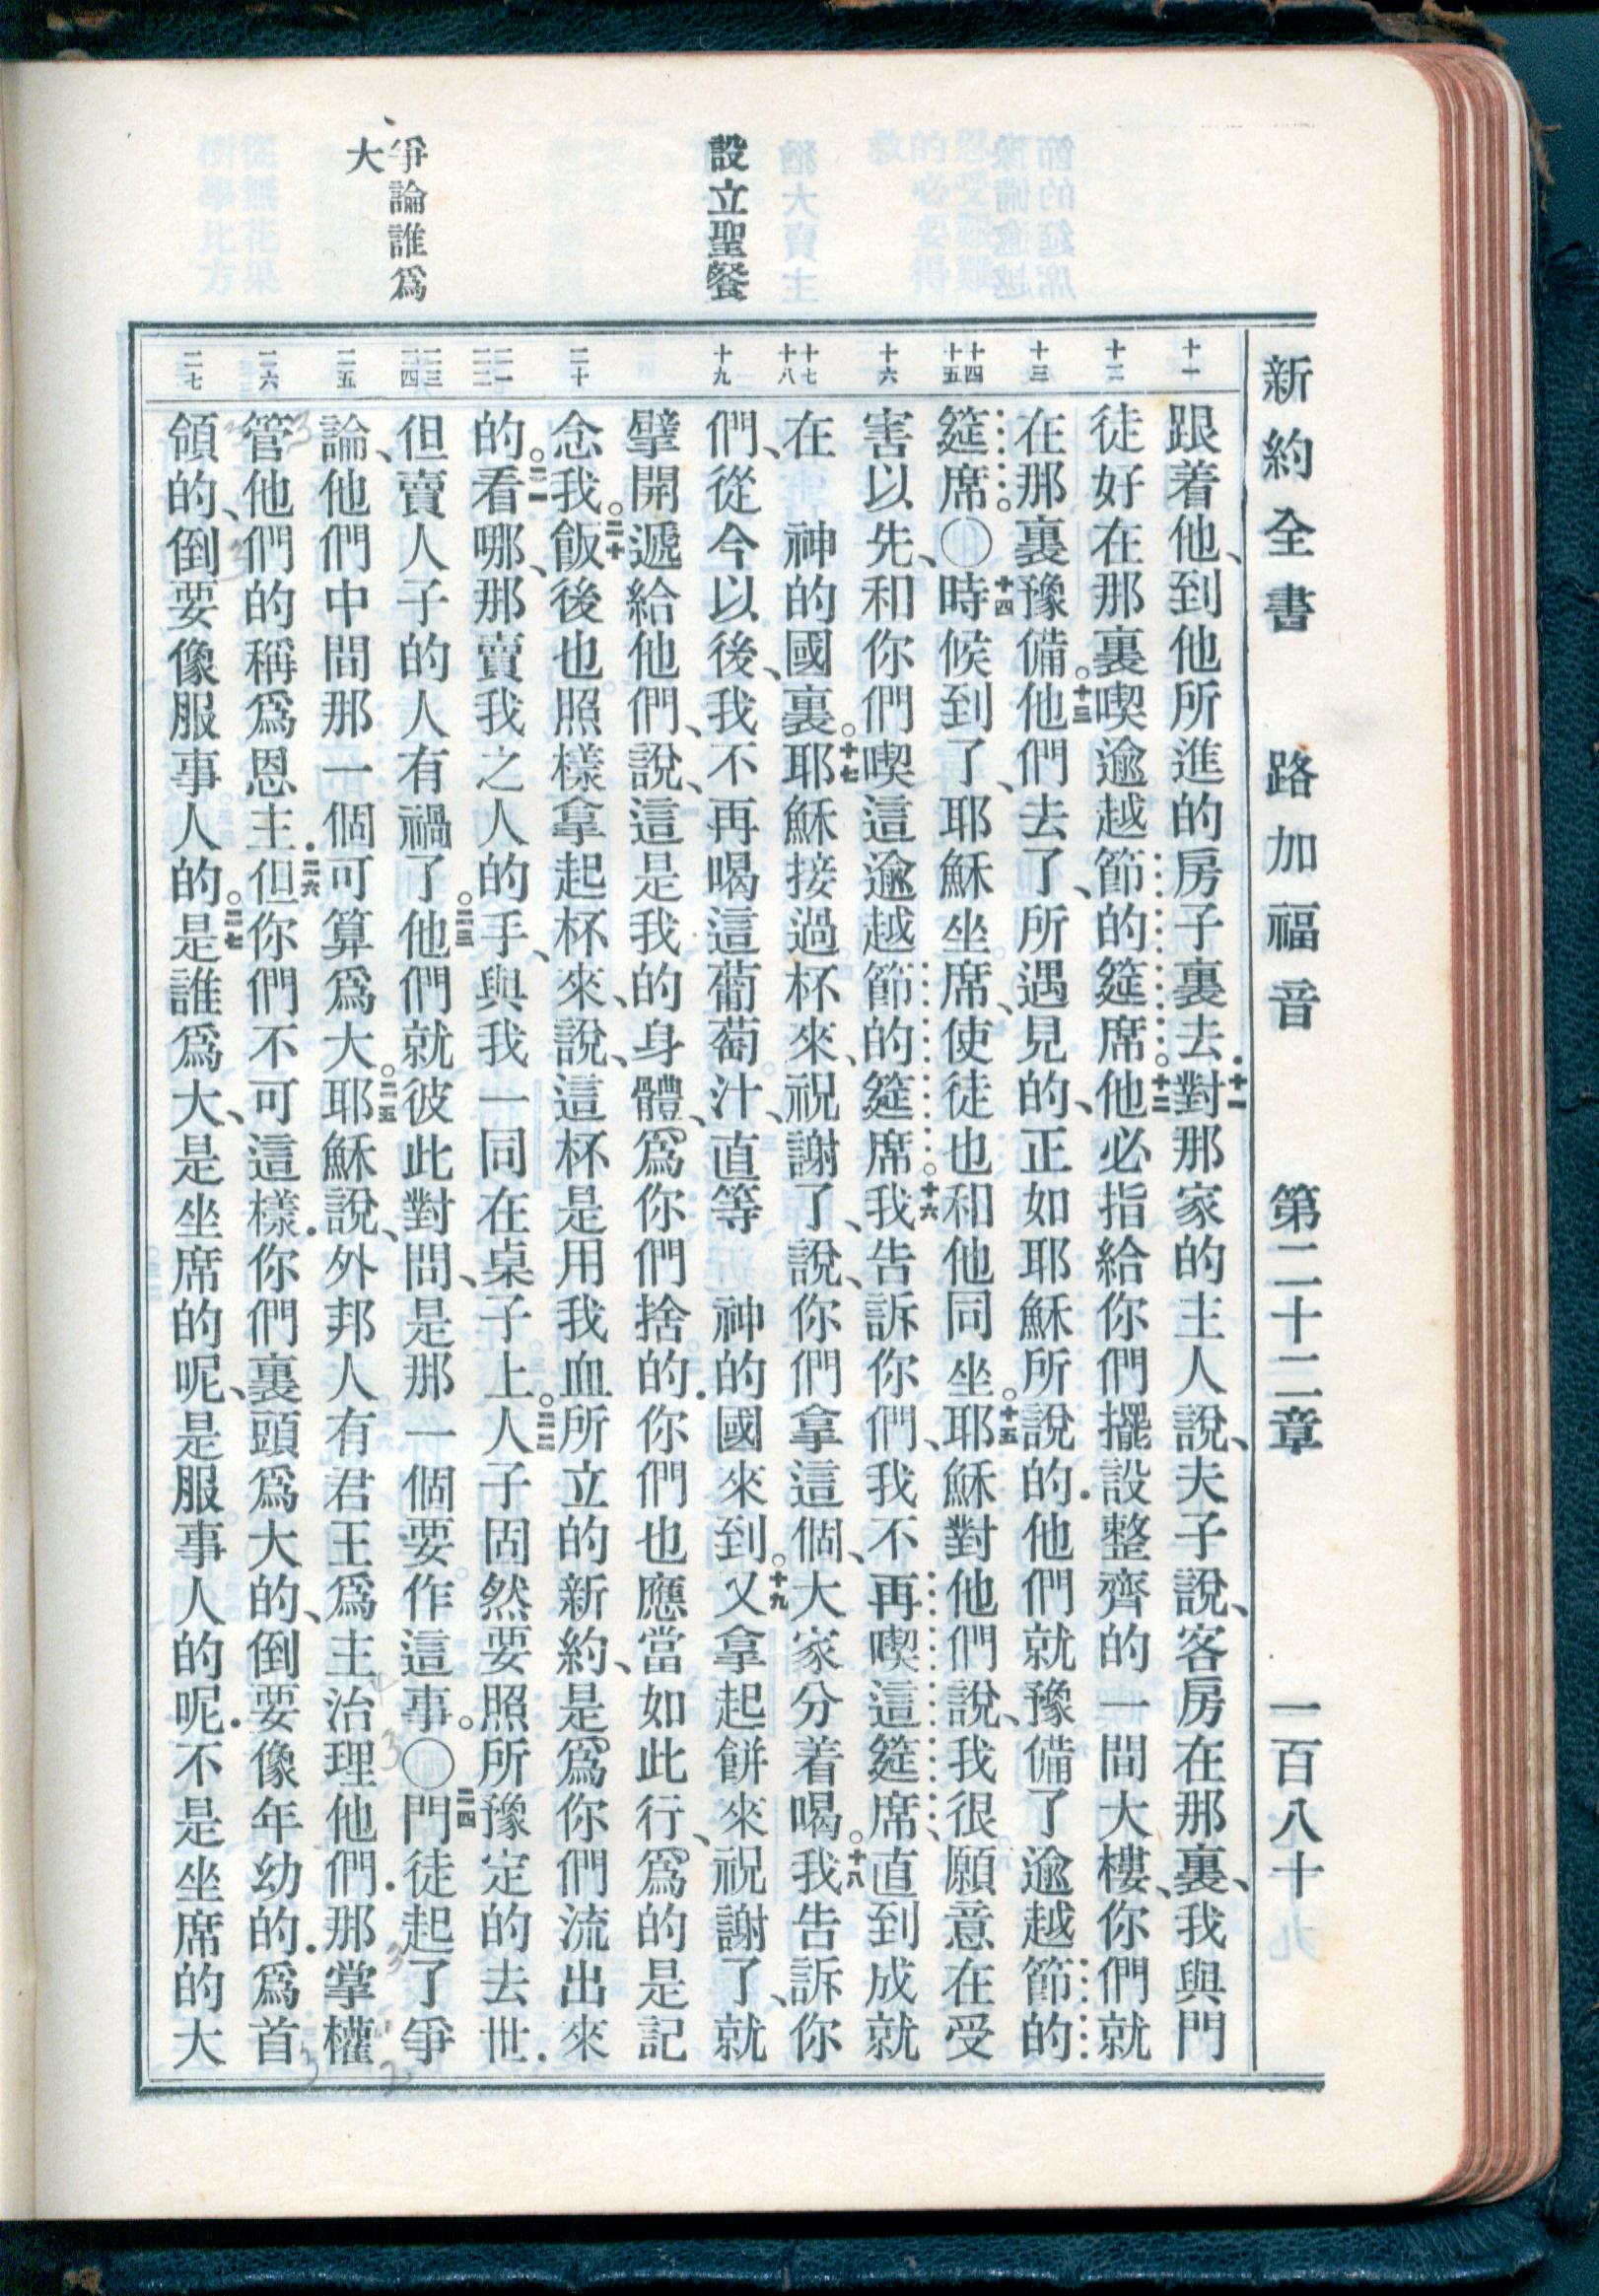 新約全書　路加福音　第二十二章　一百八十
設立聖餐
爭論誰爲
大
十一
十二
十三
十四
十五
十六
十七
十八
十九
二十
二一
二二
二三
二四
二五
二六
二七
跟着他、到他所進的房子裏去．十一對那家的主人說、夫子說、客房在那裏、我與門
徒好在那裏喫逾越節的筵席。十二他必指給你們擺設整齊的一間大樓、你們就
在那裏豫備。十三他們去了、所遇見的、正如耶穌所說的．他們就豫備了逾越節的
筵席。〇十四時候到了、耶穌坐席、使徒也和他同坐。十五耶穌對他們說、我很願意在受
害以先、和你們喫這逾越節的筵席。十六我告訴你們、我不再喫這筵席、直到成就
在　神的國裏。十七耶穌接過杯來、祝謝了、說、你們拿這個、大家分着喝。十八我告訴你
們、從今以後、我不再喝這葡萄汁、直等　神的國來到。十九又拿起餅來祝謝了、就
擘開遞給他們、說、這是我的身體、爲你們捨的．你們也應當如此行、爲的是記
念我。二十飯後也照樣拿起杯來、說、這杯是用我血所立的新約、是爲你們流出來
的。二一看哪、那賣我之人的手、與我一同在桌子上。二二人子固然要照所豫定的去世．
但賣人子的人有禍了。二三他們就彼此對問、是那一個要作這事。〇二四門徒起了爭
論、他們中間那一個可算爲大。二五耶穌說、外邦人有君王爲主治理他們．那掌權
管他們的稱爲恩主．二六但你們不可這樣．你們裏頭爲大的、倒要像年幼的．爲首
領的、倒要像服事人的。二七是誰爲大、是坐席的呢、是服事人的呢．不是坐席的大